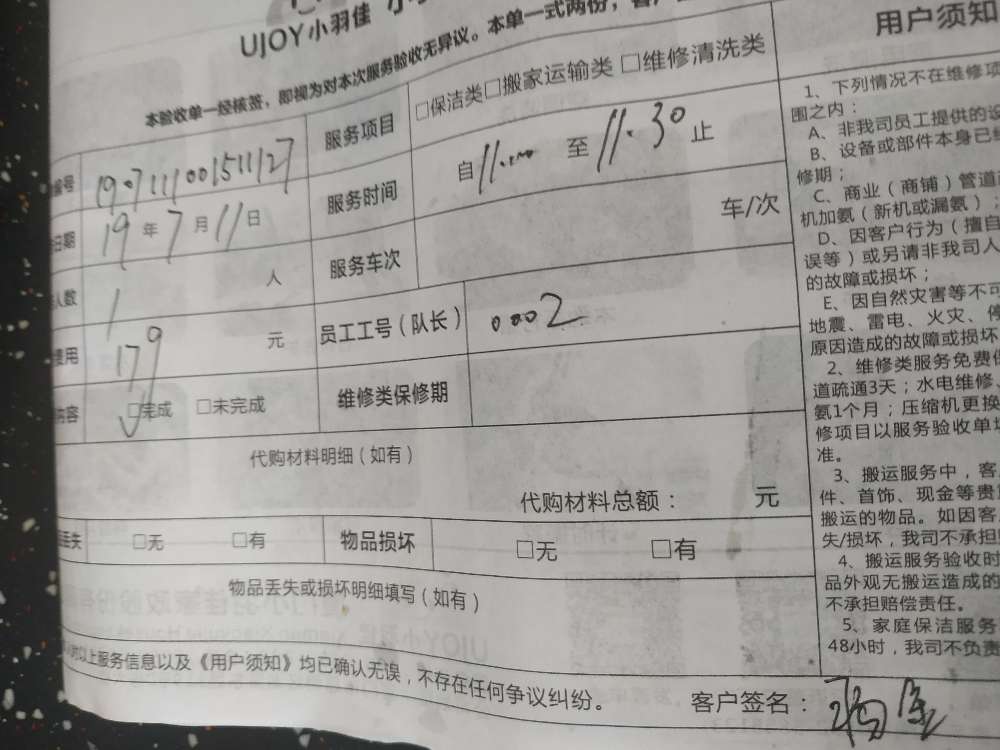 UJOY小羽佳
本验收单一经核签，即视为对本次服务验收无异议。本单一式两份，
编号 190711100151127 服务项目 □保洁类□搬家运输类 □维修清洗类
日期 19年7月11日 服务时间 自11. 至11.30止
人数 1人 服务车次 车/次
费用 179元 员工工号（队长） 0002
内容 □完成 □未完成 维修类保修期
代购材料明细（如有）
代购材料总额： 元
丢失 □无 □有 物品损坏 □无 □有
物品丢失或损坏明细填写（如有）
以上服务信息以及《用户须知》均已确认无误，不存在任何争议纠纷。
客户签名：
用户须知
1、下列情况不在维修项
围之内：
A、非我司员工提供的设
B、设备或部件本身已
修期；
C、商业（商铺）管道
机加氨（新机或漏氨）；
D、因客户行为（擅自
误等）或另请非我司人
的故障或损坏；
E、因自然灾害等不可
地震、雷电、火灾、停
原因造成的故障或损坏
2、维修类服务免费
道疏通3天；水电维修、
氨1个月；压缩机更换
修项目以服务验收单
准。
3、搬运服务中，客
件、首饰、现金等贵
搬运的物品。如因客
失/损坏，我司不承担
4、搬运服务验收时
品外观无搬运造成的
不承担赔偿责任。
5、家庭保洁服务
48小时，我司不负责